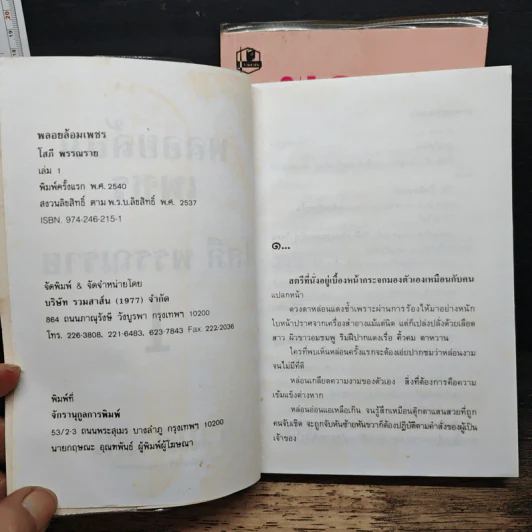 พลอยล้อมเพชร
โสภี พรรณราย
เล่ม 1
พิมพ์ครั้งแรก พ.ศ. 2540
สงวนลิขสิทธิ์ ตาม พ.ร.บ.ลิขสิทธิ์ พ.ศ. 2537
ISBN. 974-246-215-1
จัดพิมพ์ & จัดจำหน่ายโดย
บริษัท รวมสาส์น (1977) จำกัด
864 ถนนภาณุรังษี วังบูรพา กรุงเทพฯ 10200
โทร. 226-3808, 221-6483, 623-7843 Fax. 222-2036
พิมพ์ที่
จักรานุกูลการพิมพ์
53/2-3 ถนนพระสุเมร บางลำภู กรุงเทพฯ 10200
นายกฤษณะ อุณฑพันธ์ ผู้พิมพ์ผู้โฆษณา
๑...
สตรีที่นั่งอยู่เบื้องหน้ากระจกมองตัวเองเหมือนกับคน
แปลกหน้า
ดวงตาหล่อนแดงช้ำเพราะผ่านการร้องไห้มาอย่างหนัก
ใบหน้าปราศจากเครื่องสำอางแม้แต่นิด แต่ก็เปล่งปลั่งด้วยเลือด
สาว ผิวขาวอมชมพู ริมฝีปากแดงเรื่อ คิ้วคม ตาหวาน
ใครที่พบเห็นหล่อนครั้งแรกจะต้องเอ่ยปากชมว่าหล่อนงาม
จนไม่มีที่ติ
หล่อนเกลียดความงามของตัวเอง สิ่งที่ต้องการคือความ
เข้มแข็งต่างหาก
หล่อนอ่อนแอเหลือเกิน จนรู้สึกเหมือนตุ๊กตาแสนสวยที่ถูก
คนจับเชิด จะถูกจับหันซ้ายหันขวาก็ต้องปฏิบัติตามคำสั่งของผู้เป็น
เจ้าของ